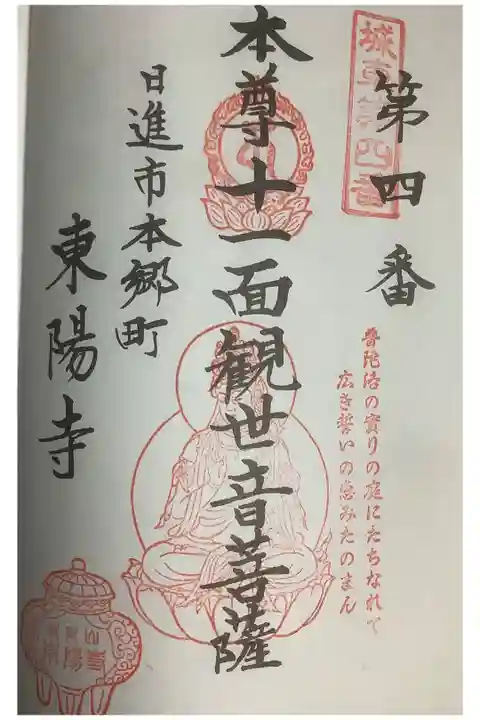 城東第四番
第四番
普陀洛の寳りの庭にたちなれて
広き誓いの恵みたのまん
本尊十一面観世音菩薩
日進市本郷町
東陽寺